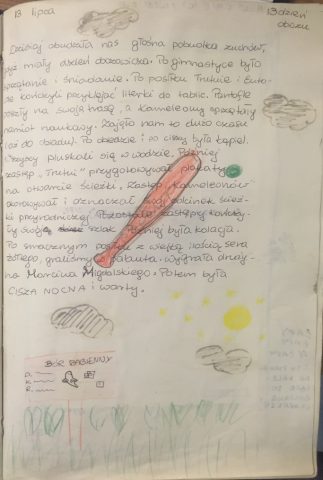 13 lipca
13 dzień
obozu
Dzisiaj obudziła nas głośna pobudka zuchów,
gdyż miały dzień dorosłości. Po gimnastyce było
sprzątanie i śniadanie. Po posiłku Trutnie i
kończyli przybijać literki do tablic. Pantofle
poszły na swoją trasę, a Kameleony sprzątały
namiot naukowy. Zajęło nam to dużo czasu
(aż do obiadu). Po obiedzie i po ciszy była kąpiel.
Wszyscy pluskali się w wodzie. Później
zastęp „Trutni” przygotowywał plakaty
na otwarcie ścieżki. Zastęp Kameleonów
i oznaczał swój odcinek ścież-
ki przyrodniczej. Pozostałe zastępy
swój szlak. Później była kolacja.
Po smacznym posiłku z wielką ilością sera
żółtego, graliśmy w palanta. Wygrała druży-
na Marcina Migdalskiego. Potem była
CISZA NOCNA i warty.
BÓR BAGIENNY
D.
K.
R.